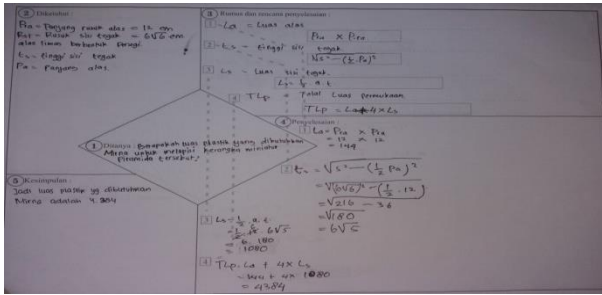 2 Diketahui :
Pra = Panjang rusuk alas = 12 cm
Rst = Rusuk sisi tegak = 6√6 cm
alas limas berbentuk persegi
ts = tinggi sisi tegak
Pa = panjang alas.
3 Rumus dan rencana penyelesaian :
1 La = Luas alas
Pra x Pra
2 ts = tinggi sisi tegak
√s² - (½ Pa)²
3 Ls = Luas sisi tegak.
Ls = ½ a. t
4 TLp = Total Luas permukaan
TLp = La + 4 x Ls
1 Ditanya : Berapakah luas plastik yang dibutuhkan
Mirna untuk melapisi kerangka miniatur
Piramida tersebut?
4 Penyelesaian :
1 La = Pra x Pra
= 12 x 12
= 144
2 ts = √s² - (½ Pa)²
= √(6√6)² - (½ . 12)
= √216 - 36
= √180
= 6√5
3 Ls = ½ a. t
= ½ . 12 . 6√5
= 6. 180
= 1080
4 TLp = La + 4 x Ls
= 144 + 4 x 1080
= 4384
5 Kesimpulan :
Jadi luas plastik yg dibutuhkan
Mirna adalah 4.384